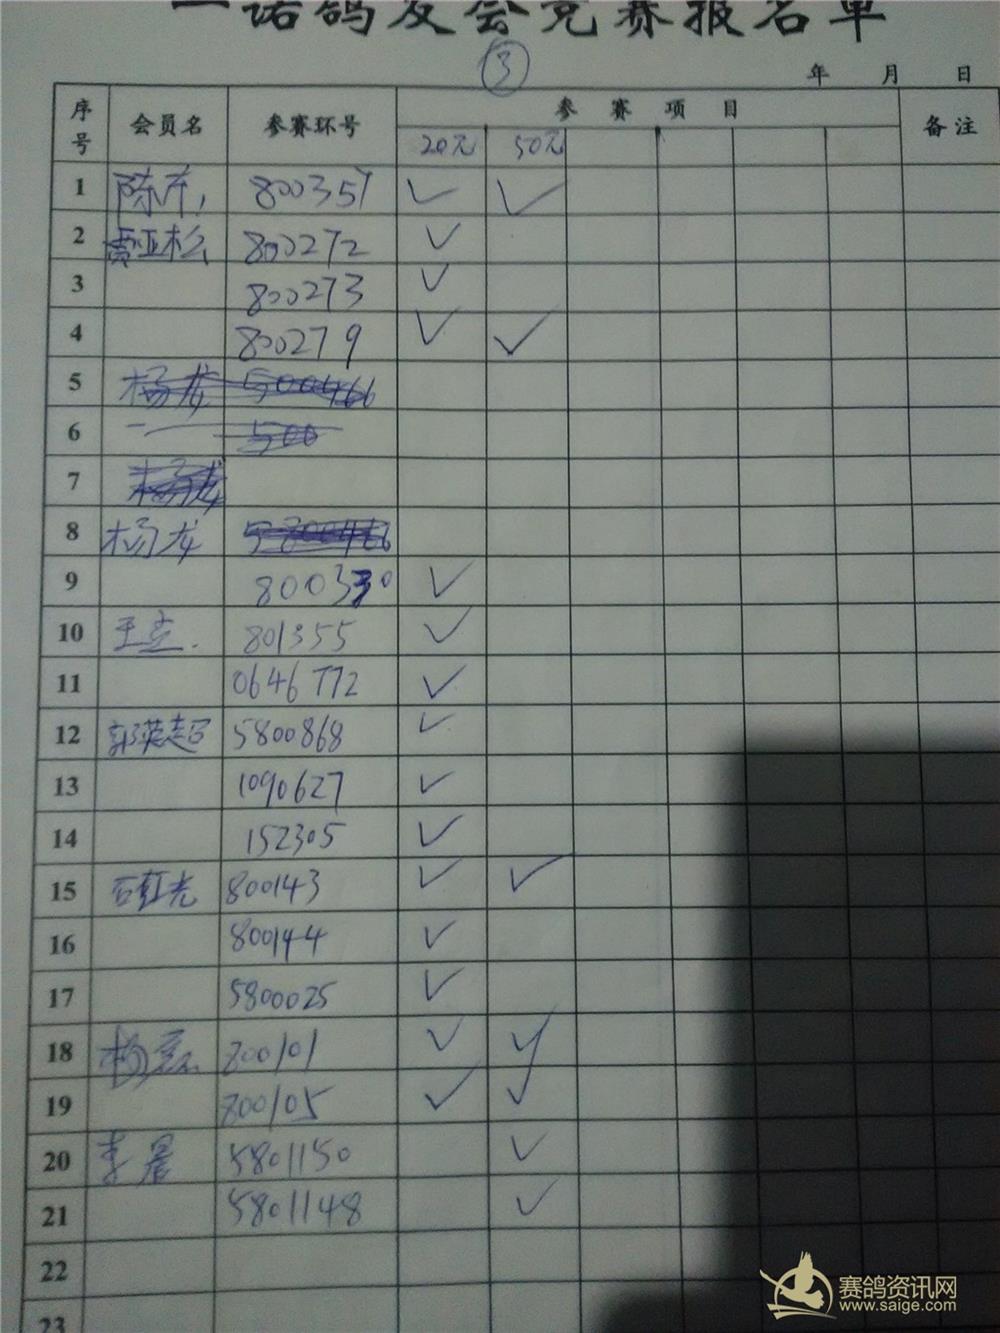 一诺鸽友会竞赛报名单
3
年 月 日
序号 会员名 参赛环号 参赛项目 备注
20元 50元
1 800357 ✓ ✓
2 贾亚松 800272 ✓
3 800273 ✓
4 800279 ✓ ✓
5 杨龙 500466
6 500
7 杨龙
8 杨龙 5800466
9 800330 ✓
10 801355 ✓
11 0646772 ✓
12 郭英超 5800868 ✓
13 1090627 ✓
14 152305 ✓
15 石红光 800143 ✓ ✓
16 800144 ✓
17 5800025 ✓
18 800101 ✓ ✓
19 800105 ✓ ✓
20 李晨 5801150 ✓
21 5801148 ✓
22
23
赛鸽资讯网
www.saige.com